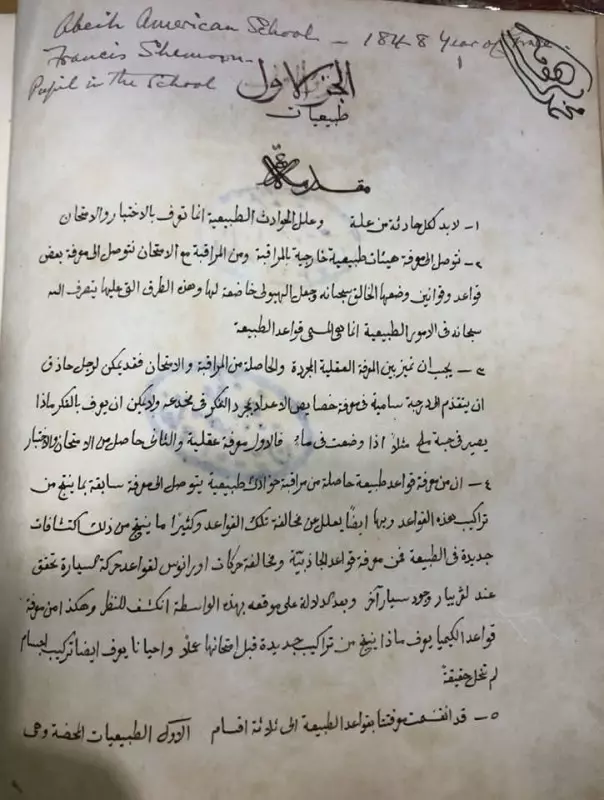 Abeih American School - 1848 Year of Grace
Francis Shemoon -
Pupil in the School
الجزء الاول
طبيعيات
مقدمة
١- لا بد لكل حادثة من علة وعلل الحوادث الطبيعية انما تعرف بالاختبار والامتحان
٢- نتوصل الى معرفة هيئات طبيعية خارجية بالمراقبة ومن المراقبة مع الامتحان نتوصل الى معرفة بعض
قواعد وقوانين وضعها الخالق سبحانه وجعل الهيولى خاضعة لها وهذه الطرق التي عليها يتصرف الله
سبحانه في الامور الطبيعية انما هي المسمى قواعد الطبيعة
٣- يجب ان نميز بين المعرفة العقلية المجردة والحاصلة من المراقبة والامتحان فقد يمكن لرجل حاذق
ان يتقدم الى درجة سامية في معرفة خصايص الاعداد بمجرد الفكر في مخدعه ولا يمكن ان يعرف بالفكر ماذا
يصير في حبة ملح مثلاً اذا وضعت في ماء فالاول معرفة عقلية والثاني حاصل من الامتحان والاختبار
٤- ان من معرفة قواعد طبيعة حاصلة من مراقبة حوادث طبيعية يتوصل الى معرفة سابقة بما ينتج من
تراكيب هذه القواعد وبها ايضاً يعلل عن مخالفة تلك القواعد وكثيراً ما ينتج من ذلك اكتشافات
جديدة في الطبيعة فمن معرفة قواعد الجاذبية ومخالفة حركات اورانوس لقواعد حركة السيارة تحقق
عند وجود سيار آخر وبعد الدلالة على موقعه بهذه الواسطة انكشف للنظر وهكذا من معرفة
قواعد الكيميا يعرف ماذا ينتج من تراكيب جديدة قبل امتحانها عملاً واحيانا يعرف ايضا تركيب اجسام
لم تحل حقيقة
٥- قد انقسمت معرفتنا بقواعد الطبيعة الى ثلاثة اقسام الاول الطبيعيات المحضة وهي